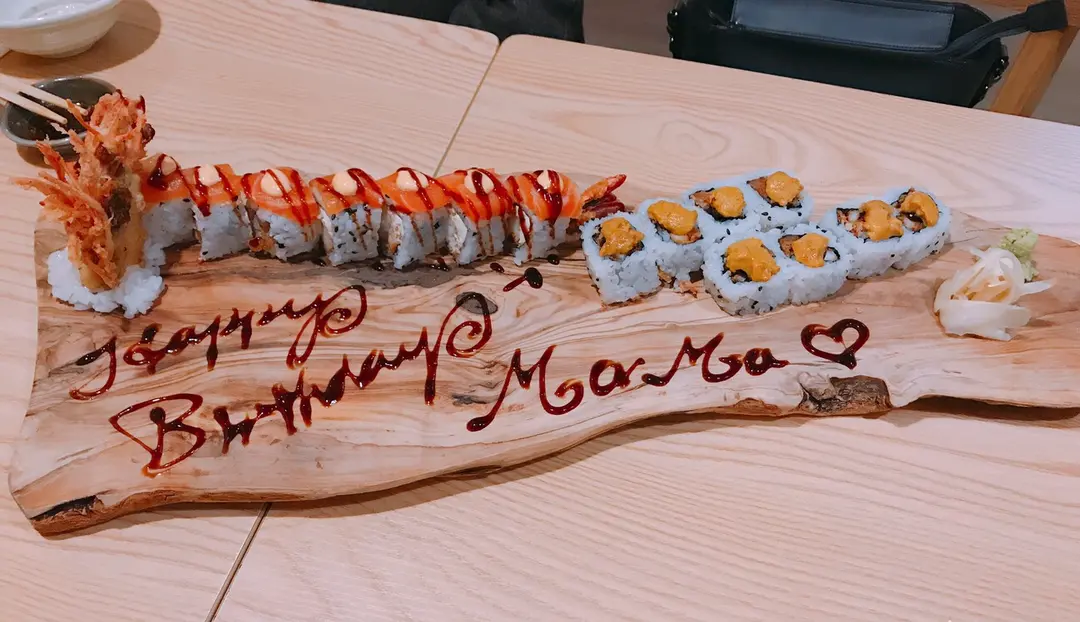 Happy
Birthday
MaMa ♡